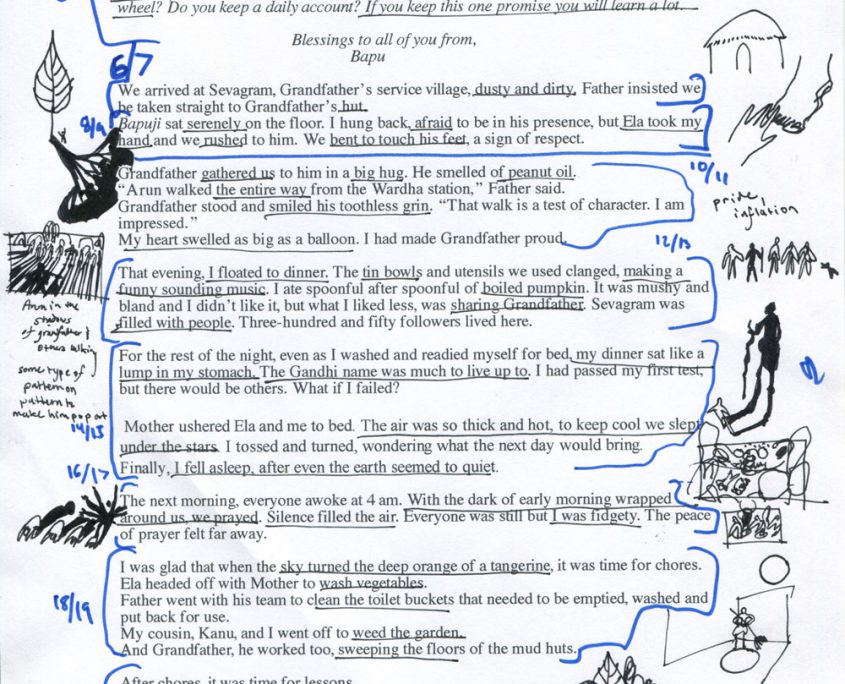 wheel? Do you keep a daily account? If you keep this one promise you will learn a lot.
Blessings to all of you from,
Bapu
6/7
We arrived at Sevagram, Grandfather's service village, dusty and dirty. Father insisted we
be taken straight to Grandfather's hut.
8/9
Bapuji sat serenely on the floor. I hung back, afraid to be in his presence, but Ela took my
hand and we rushed to him. We bent to touch his feet, a sign of respect.
10/11
Grandfather gathered us to him in a big hug. He smelled of peanut oil.
"Arun walked the entire way from the Wardha station," Father said.
Grandfather stood and smiled his toothless grin. "That walk is a test of character. I am
impressed."
My heart swelled as big as a balloon. I had made Grandfather proud.
pride,
inflation
12/13
That evening, I floated to dinner. The tin bowls and utensils we used clanged, making a
funny sounding music. I ate spoonful after spoonful of boiled pumpkin. It was mushy and
bland and I didn't like it, but what I liked less, was sharing Grandfather. Sevagram was
filled with people. Three-hundred and fifty followers lived here.
Arun in the
shadows
of grandfather &
others talking
some type of
pattern on
pattern to
make him pop out
14/15
For the rest of the night, even as I washed and readied myself for bed, my dinner sat like a
lump in my stomach. The Gandhi name was much to live up to. I had passed my first test,
but there would be others. What if I failed?
Mother ushered Ela and me to bed. The air was so thick and hot, to keep cool we slept
under the stars. I tossed and turned, wondering what the next day would bring.
Finally, I fell asleep, after even the earth seemed to quiet.
16/17
The next morning, everyone awoke at 4 am. With the dark of early morning wrapped
around us, we prayed. Silence filled the air. Everyone was still but I was fidgety. The peace
of prayer felt far away.
18/19
I was glad that when the sky turned the deep orange of a tangerine, it was time for chores.
Ela headed off with Mother to wash vegetables.
Father went with his team to clean the toilet buckets that needed to be emptied, washed and
put back for use.
My cousin, Kanu, and I went off to weed the garden.
And Grandfather, he worked too, sweeping the floors of the mud huts.
After chores, it was time for lessons.